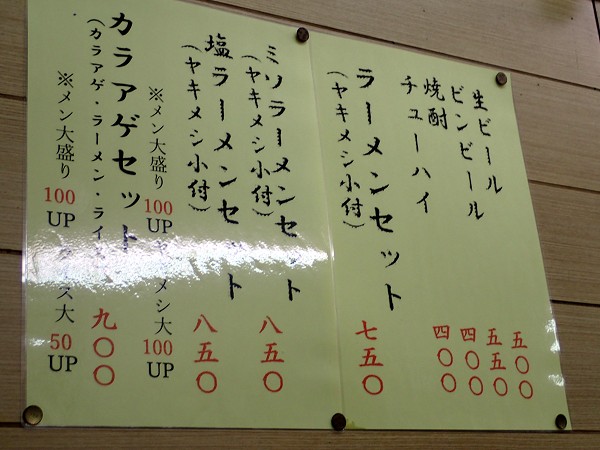 生ビール 五〇〇
ビンビール 五五〇
焼酎 四〇〇
チューハイ 四〇〇
ラーメンセット 七五〇
(ヤキメシ小付)
ミソラーメンセット 八五〇
(ヤキメシ小付)
塩ラーメンセット 八五〇
(ヤキメシ小付)
※メン大盛り100UP ヤキメシ大100UP
カラアゲセット 九〇〇
(カラアゲ・ラーメン・ライス)
※メン大盛り100UP ライス大50UP